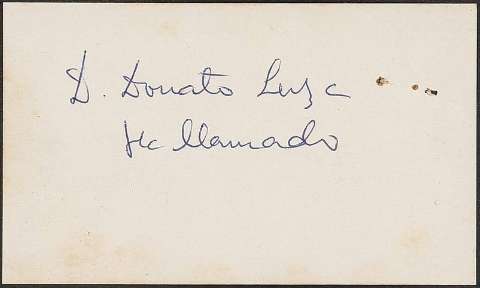 D. Donato
ha llamado